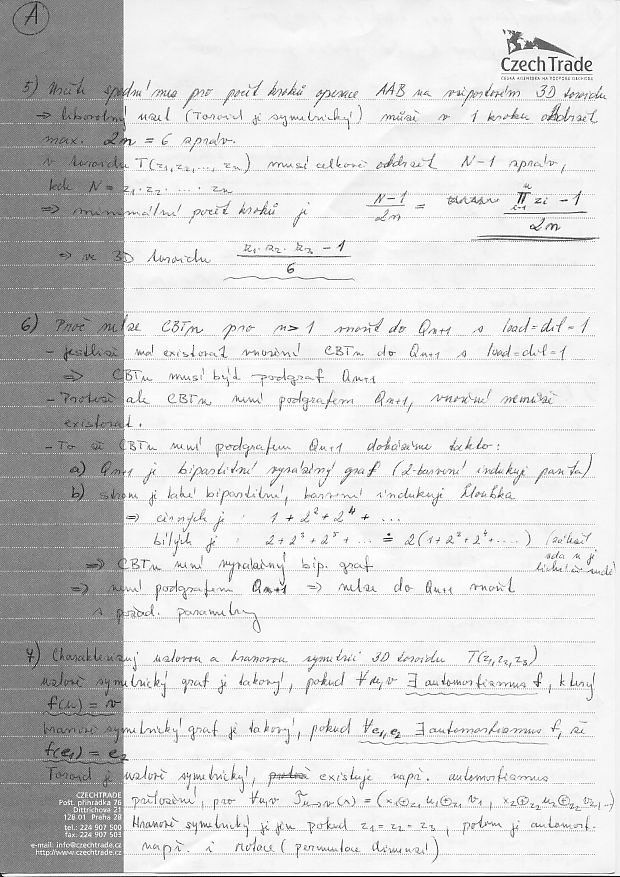 A
CzechTrade
ČESKÁ AGENTURA NA PODPORU OBCHODU
5) Určete spodní mez pro počet kroků operace AAB na všeportovém 3D toroidu
⇒ libovolný uzel (Toroid je symetrický) může v 1 kroku obdržet
max. 2n = 6 zpráv.
v toroidu T(z1, z2, ..., zn) musí celkově obdržet N-1 zpráv,
kde N = z1 · z2 · ... · zn
⇒ minimální počet kroků je N-1 / 2n = ∏ i=1 n zi - 1 / 2n
⇒ ve 3D toroidu z1 · z2 · z3 - 1 / 6
6) Proč nelze CBTn pro n>1 vnořit do Qn+1 s load=dil=1
- jestliže má existovat vnoření CBTn do Qn+1 s load=dil=1
⇒ CBTn musí být podgraf Qn+1
- Protože ale CBTn není podgrafem Qn+1, vnoření nemůže
existovat.
- To že CBTn není podgrafem Qn+1 dokážeme takto:
a) Qn+1 je bipartitní vyvážený graf (2-barvení indukuje parita)
b) strom je také bipartitní, barvení indukuje hloubka
⇒ černých je : 1 + 2² + 2⁴ + ...
bílých je : 2 + 2³ + 2⁵ + ... ≐ 2(1 + 2² + 2⁴ + ....) (záleží
zda n je
liché či sudé)
⇒ CBTn není vyvážený bip. graf
⇒ není podgrafem Qn+1 ⇒ nelze do Qn+1 vnořit
s požad. parametry
7) Charakterizuj uzlovou a hranovou symetrii 3D toroidu T(z1, z2, z3)
uzlově symetrický graf je takový, pokud ∀u,v ∃ automorfismus f, který
f(u) = v
hranově symetrický graf je takový, pokud ∀e1,e2 ∃ automorfismus f, že
f(e1) = e2
Toroid je uzlově symetrický, protože existuje např. automorfismus
přiložení, pro ∀u,v
Hranově symetrický je jen pokud z1 = z2 = z3, potom je automorf.
např. i rotace (permutace dimenzí)
CZECHTRADE
Pošt. přihrádka 76
Dittrichova 21
128 01 Praha 28
tel.: 224 907 500
fax. 224 907 503
e-mail: info@czechtrade.cz
http://www.czechtrade.cz